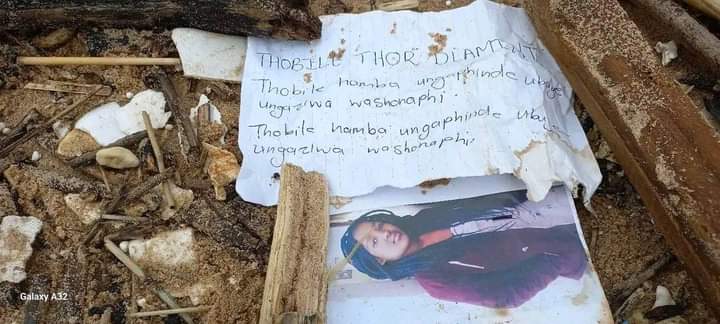 THOBILE "THOR" DIAMOND
Thobile hamba ungaphinde ubuye
ungaziwa washonaphi.
Thobile hamba ungaphinde ubu
ungaziwa washonaphi.
Galaxy A32